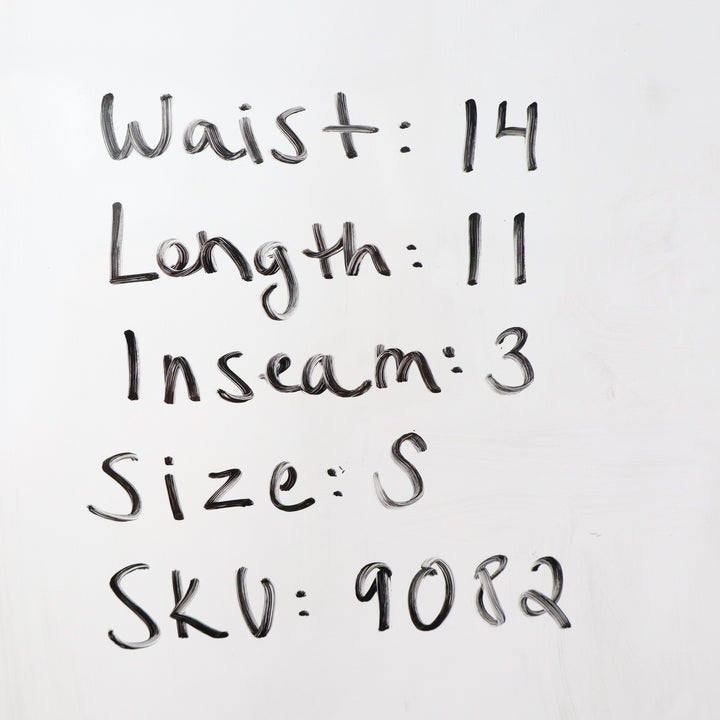 Waist: 14
Length: 11
Inseam: 3
Size: S
SKU: 9082